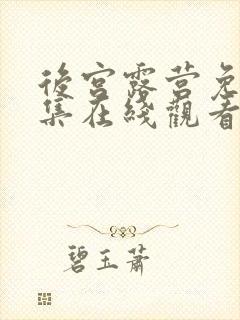 後宮露营免
集在綫觀看
碧玉蕭